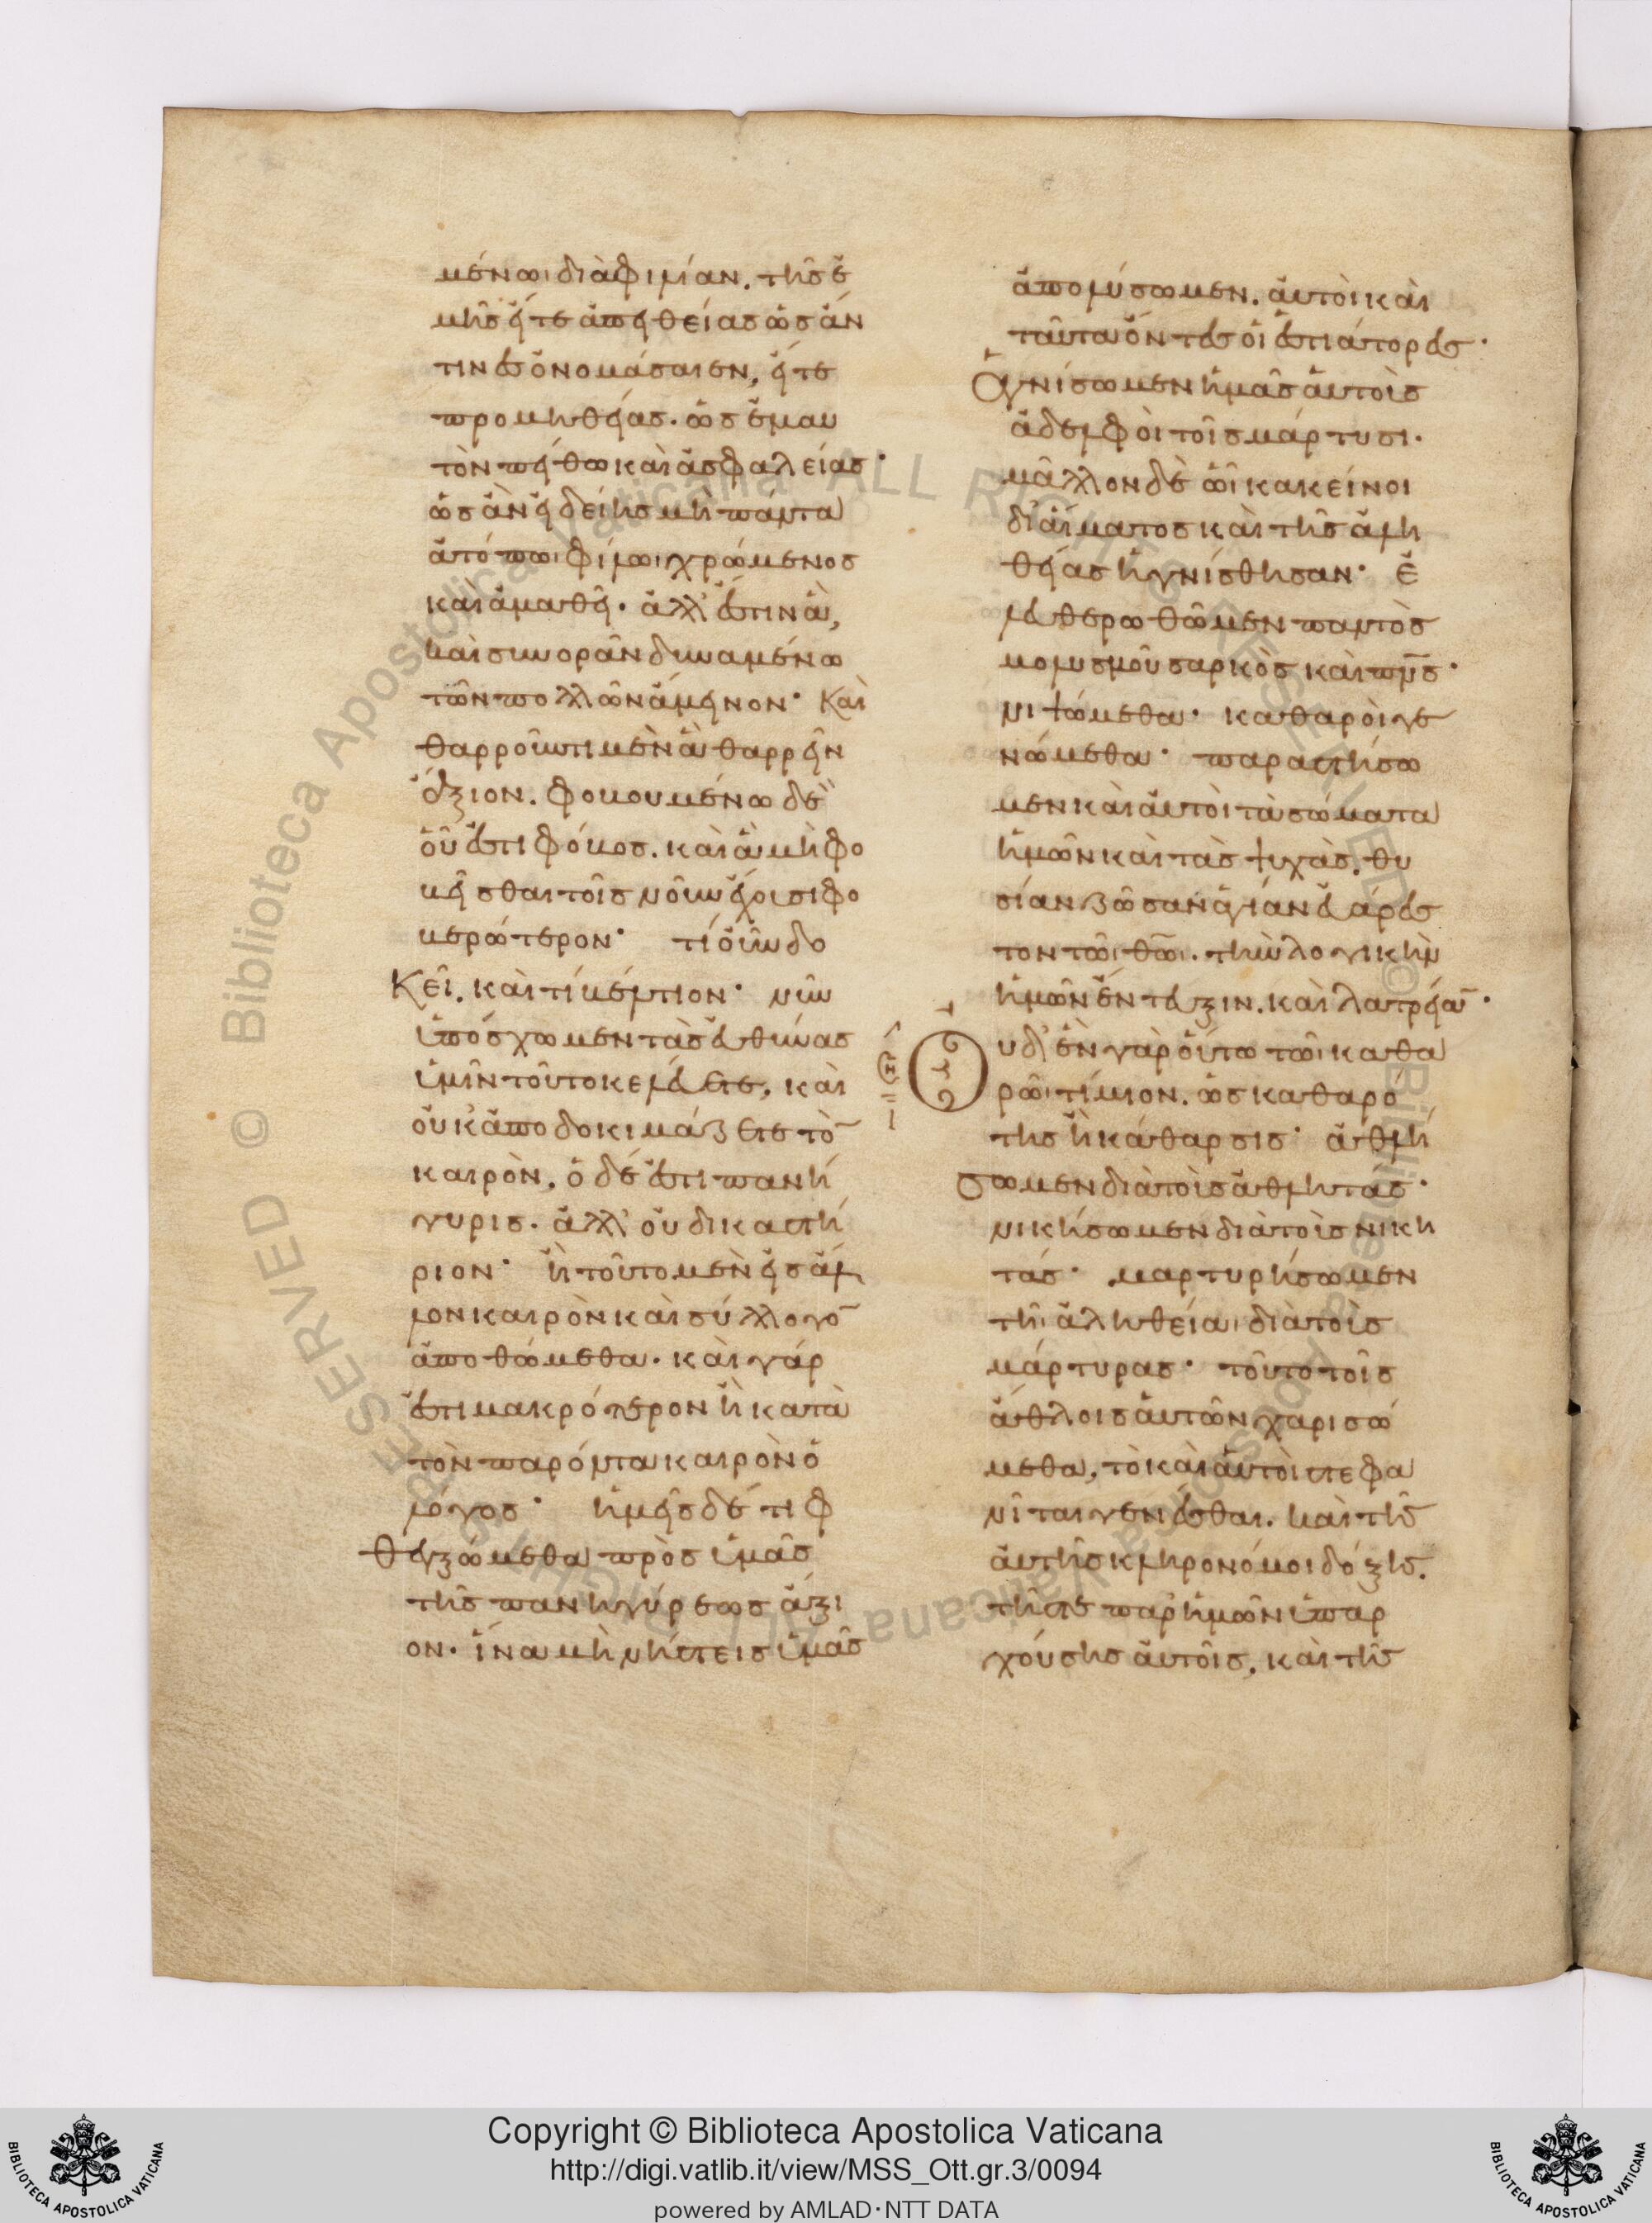 μένωι διὰ φιλίαν. τῆς ἐ
μῆς εἴτε ἀπειθείας ὡς ἄν
τινες ὀνομάσαιεν, εἴτε
προμηθείας. ὡς ἐμαυ
τὸν πείθω καὶ ἀσφαλείας·
ὡς ἂν εἰδείης μὴ πάντα
ἀτόπωι φίλωι χρώμενος
καὶ ἀμαθεῖ. ἀλλ' ἔστιν ἃ,
καὶ συνορᾶν δυναμένω
τῶν πολλῶν ἄμεινον· καὶ
θαρροῦντι μὲν ἃ θαρρεῖν
ἄξιον. φοβουμένω δὲ
οὗ ἐστι φόβος. καὶ ἃ μὴ φο
βεῖσθαι τοῖς νοῦν ἔχουσι φο
βερώτερον· τί οὖν δο
κεῖ. καὶ τί βέλτιον· νῦν
ὑπόσχωμεν τὰς εὐθύνας
ὑμῖν τοῦτο κελεύετε, καὶ
οὐκ ἀποδοκιμάζετε τὸ̄
καιρὸν, ὁ δέ ἐστι πανή
γυρις. ἀλλ' οὐ δικαστή
ριον· ἢ τοῦτο μὲν εἰς ἄλ
λον καιρὸν καὶ σύλλογο̄
ἀποθώμεθα. καὶ γάρ
ἐστι μακρότερον ἢ κατὰ
τὸν παρόντα καιρὸν ὁ
λόγος· ἡμεῖς δέ τι φ
θεγξώμεθα πρὸς ὑμᾶς
τῆς πανηγύρεως ἄξι
ον. ἵνα μὴ νήστεις ὑμᾶς
ἀπολύσωμεν. αὐτοὶ καὶ
ταῦτα ὄντες οἱ ἑστιάτορες·
Ἁγνίσωμεν ἡμᾶς αὐτοὺς
ἀδελφοὶ τοῖς μάρτυσι.
μᾶλλον δὲ ὧι κακεῖνοι
δι' αἵματος καὶ τῆς ἀλη
θείας ἡγνίσθησαν· ἐ
λευθερωθῶμεν παντὸς
μολυσμοῦ σαρκὸς καὶ πν̅ς·
νιψώμεθα· καθαροὶ γε
νώμεθα· παραστήσω
μεν καὶ αὐτοὶ τὰ σώματα
ἡμῶν καὶ τὰς ψυχὰς. θυ
σίαν ζῶσαν ἁγίαν εὐάρεσ
τον τῶι θ̅ω̅ι. τὴν λογικὴν
ἡμῶν ἔντευξιν. καὶ λατρείαν̄·
Οὐδ' ἓν γὰρ οὕτω τῶι καθα
ρῶι τίμιον. ὡς καθαρό
της ἢ κάθαρσις· ἀθλή
σωμεν διὰ τοὺς ἀθλητάς·
νικήσωμεν διὰ τοὺς νικη
τάς· μαρτυρήσωμεν
τῆι ἀληθείαι διὰ τοὺς
μάρτυρας· τοῦτο τοῖς
ἄθλοις αὐτῶν χαρισώ
μεθα, τὸ καὶ αὐτοὶ στεφα
νῖται γενέσθαι. καὶ τῆς
αὐτῆς κληρονόμοι δόξης.
τῆς τε παρ' ἡμῶν ὑπαρ
χούσης αὐτοῖς, καὶ τῆς
Copyright © Biblioteca Apostolica Vaticana
http://digi.vatlib.it/view/MSS_Ott.gr.3/0094
powered by AMLAD·NTT DATA